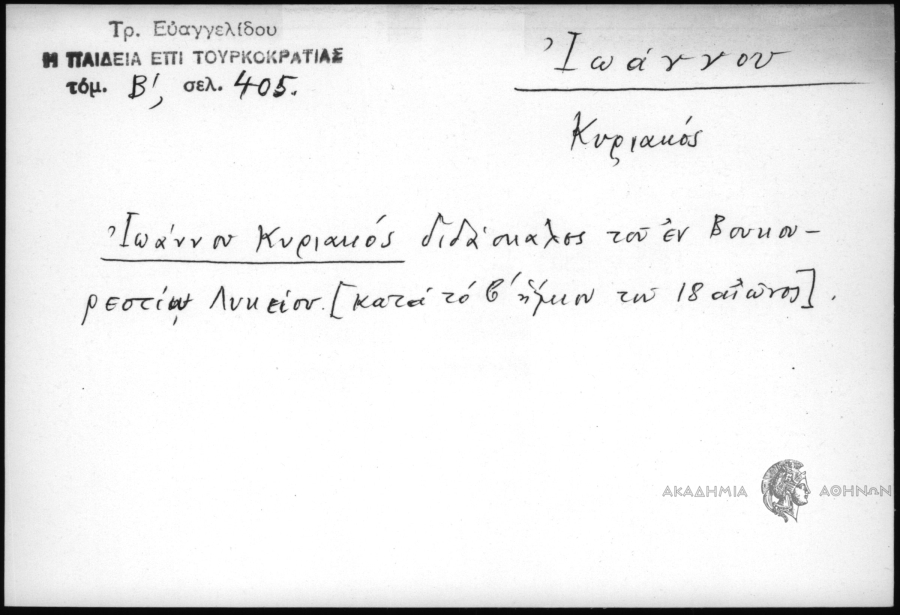 Τρ. Εὐαγγελίδου
Η ΠΑΙΔΕΙΑ ΕΠΙ ΤΟΥΡΚΟΚΡΑΤΙΑΣ
τόμ. Β', σελ. 405.
Ἰωάννου
Κυριακός
Ἰωάννου Κυριακός διδάσκαλος τοῦ ἐν Βουκου-
ρεστίῳ Λυκείου. [κατά τό β' ἥμισυ τοῦ 18 αἰῶνος].
ΑΚΑΔΗΜΙΑ ΑΘΗΝΩΝ